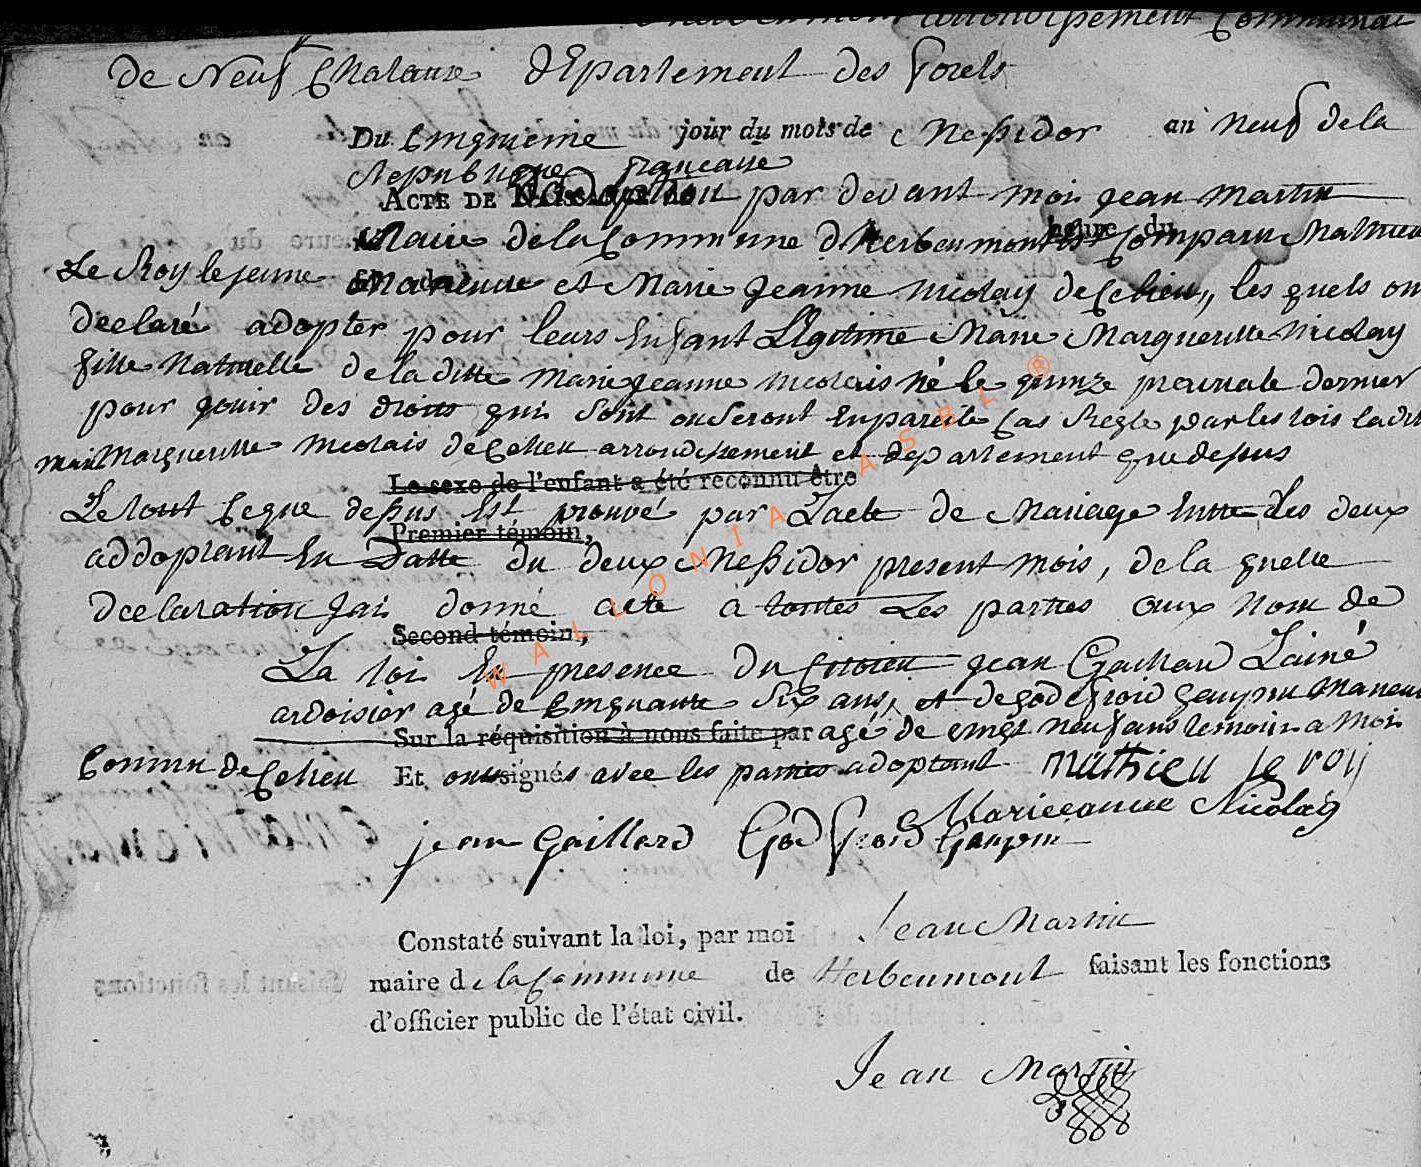 arrondissement Communal
de Neuf Chataux département des forets
Du Cinquieme jour du mois de Messidor an neuf de la
Republique francaise
ACTE DE d'adoption par devant moi jean Martin
Maire de la Commune d'herbeumont est Comparu Mathieu
Le Roy le jeune et Marie Jeanne nicolay de Cehen, les quels on
declaré adopter pour leurs Enfant Llgitime Marie Margueritte nicolay
fille Naturelle de la ditte marie jeanne nicolais né le quinze prairiale dernier
pour jouir des droits qui sont ou seront En pareile Cas Reglé par les lois ladit
mari Margueritte nicolais de Cehen arrondissement et departement que dessus
Le sexe de l'enfant a été reconnu être
Le tout Ceque dessus Est prouvé par Lacte de Mariage Entre Les deux
Premier témoin,
addoptant En Datte du deux Messidor present mois, de la quelle
declaration jai donné acte a toutes Les parties aux nom de
Second témoin,
La loi En presence du Citoien jean Gaillard Lainé
ardoisier agé de Cinquante Six ans, et de godefroid gaupin Maneu
Sur la réquisition à nous faite par agé de vingt neuf ans temoins a Moi
Connu de Cehen Et ont signés avec les parties adoptant mathieu le roy
Marie Jeanne Nicolay
jean Gaillard God froid Gaupin
Constaté suivant la loi, par moi Jean Martin
maire de la Commune de Herbeumont faisant les fonctions
d'officier public de l'état civil.
Jean Martin
WALLONIA ASBL ®